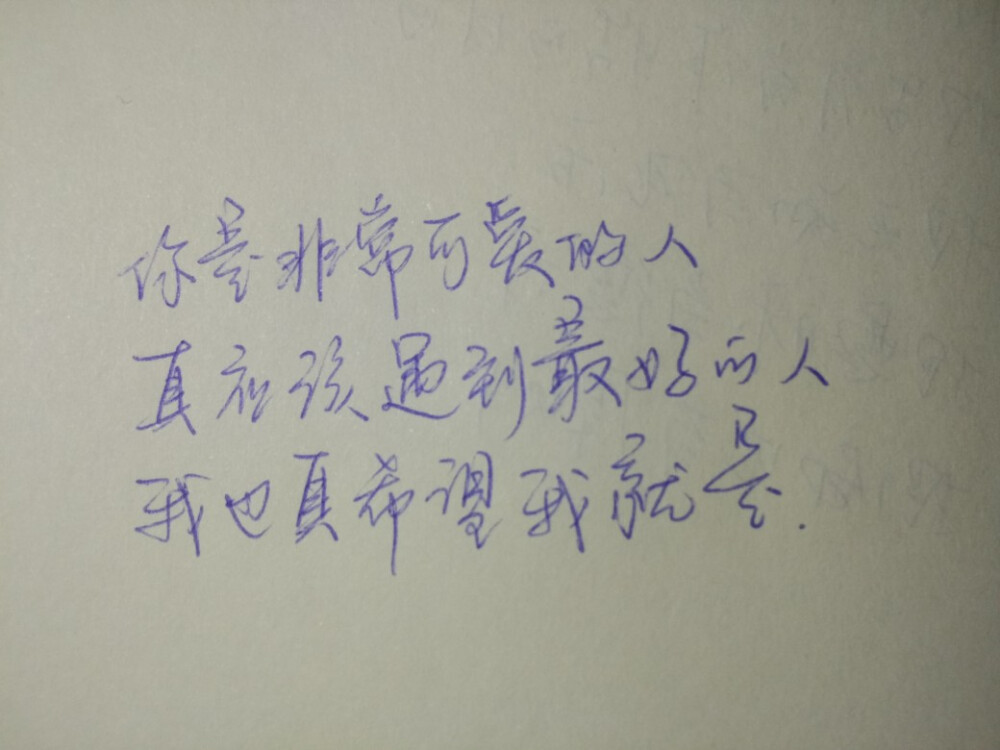 你是非常可爱的人
真应该遇到最好的人
我也真希望我就是.